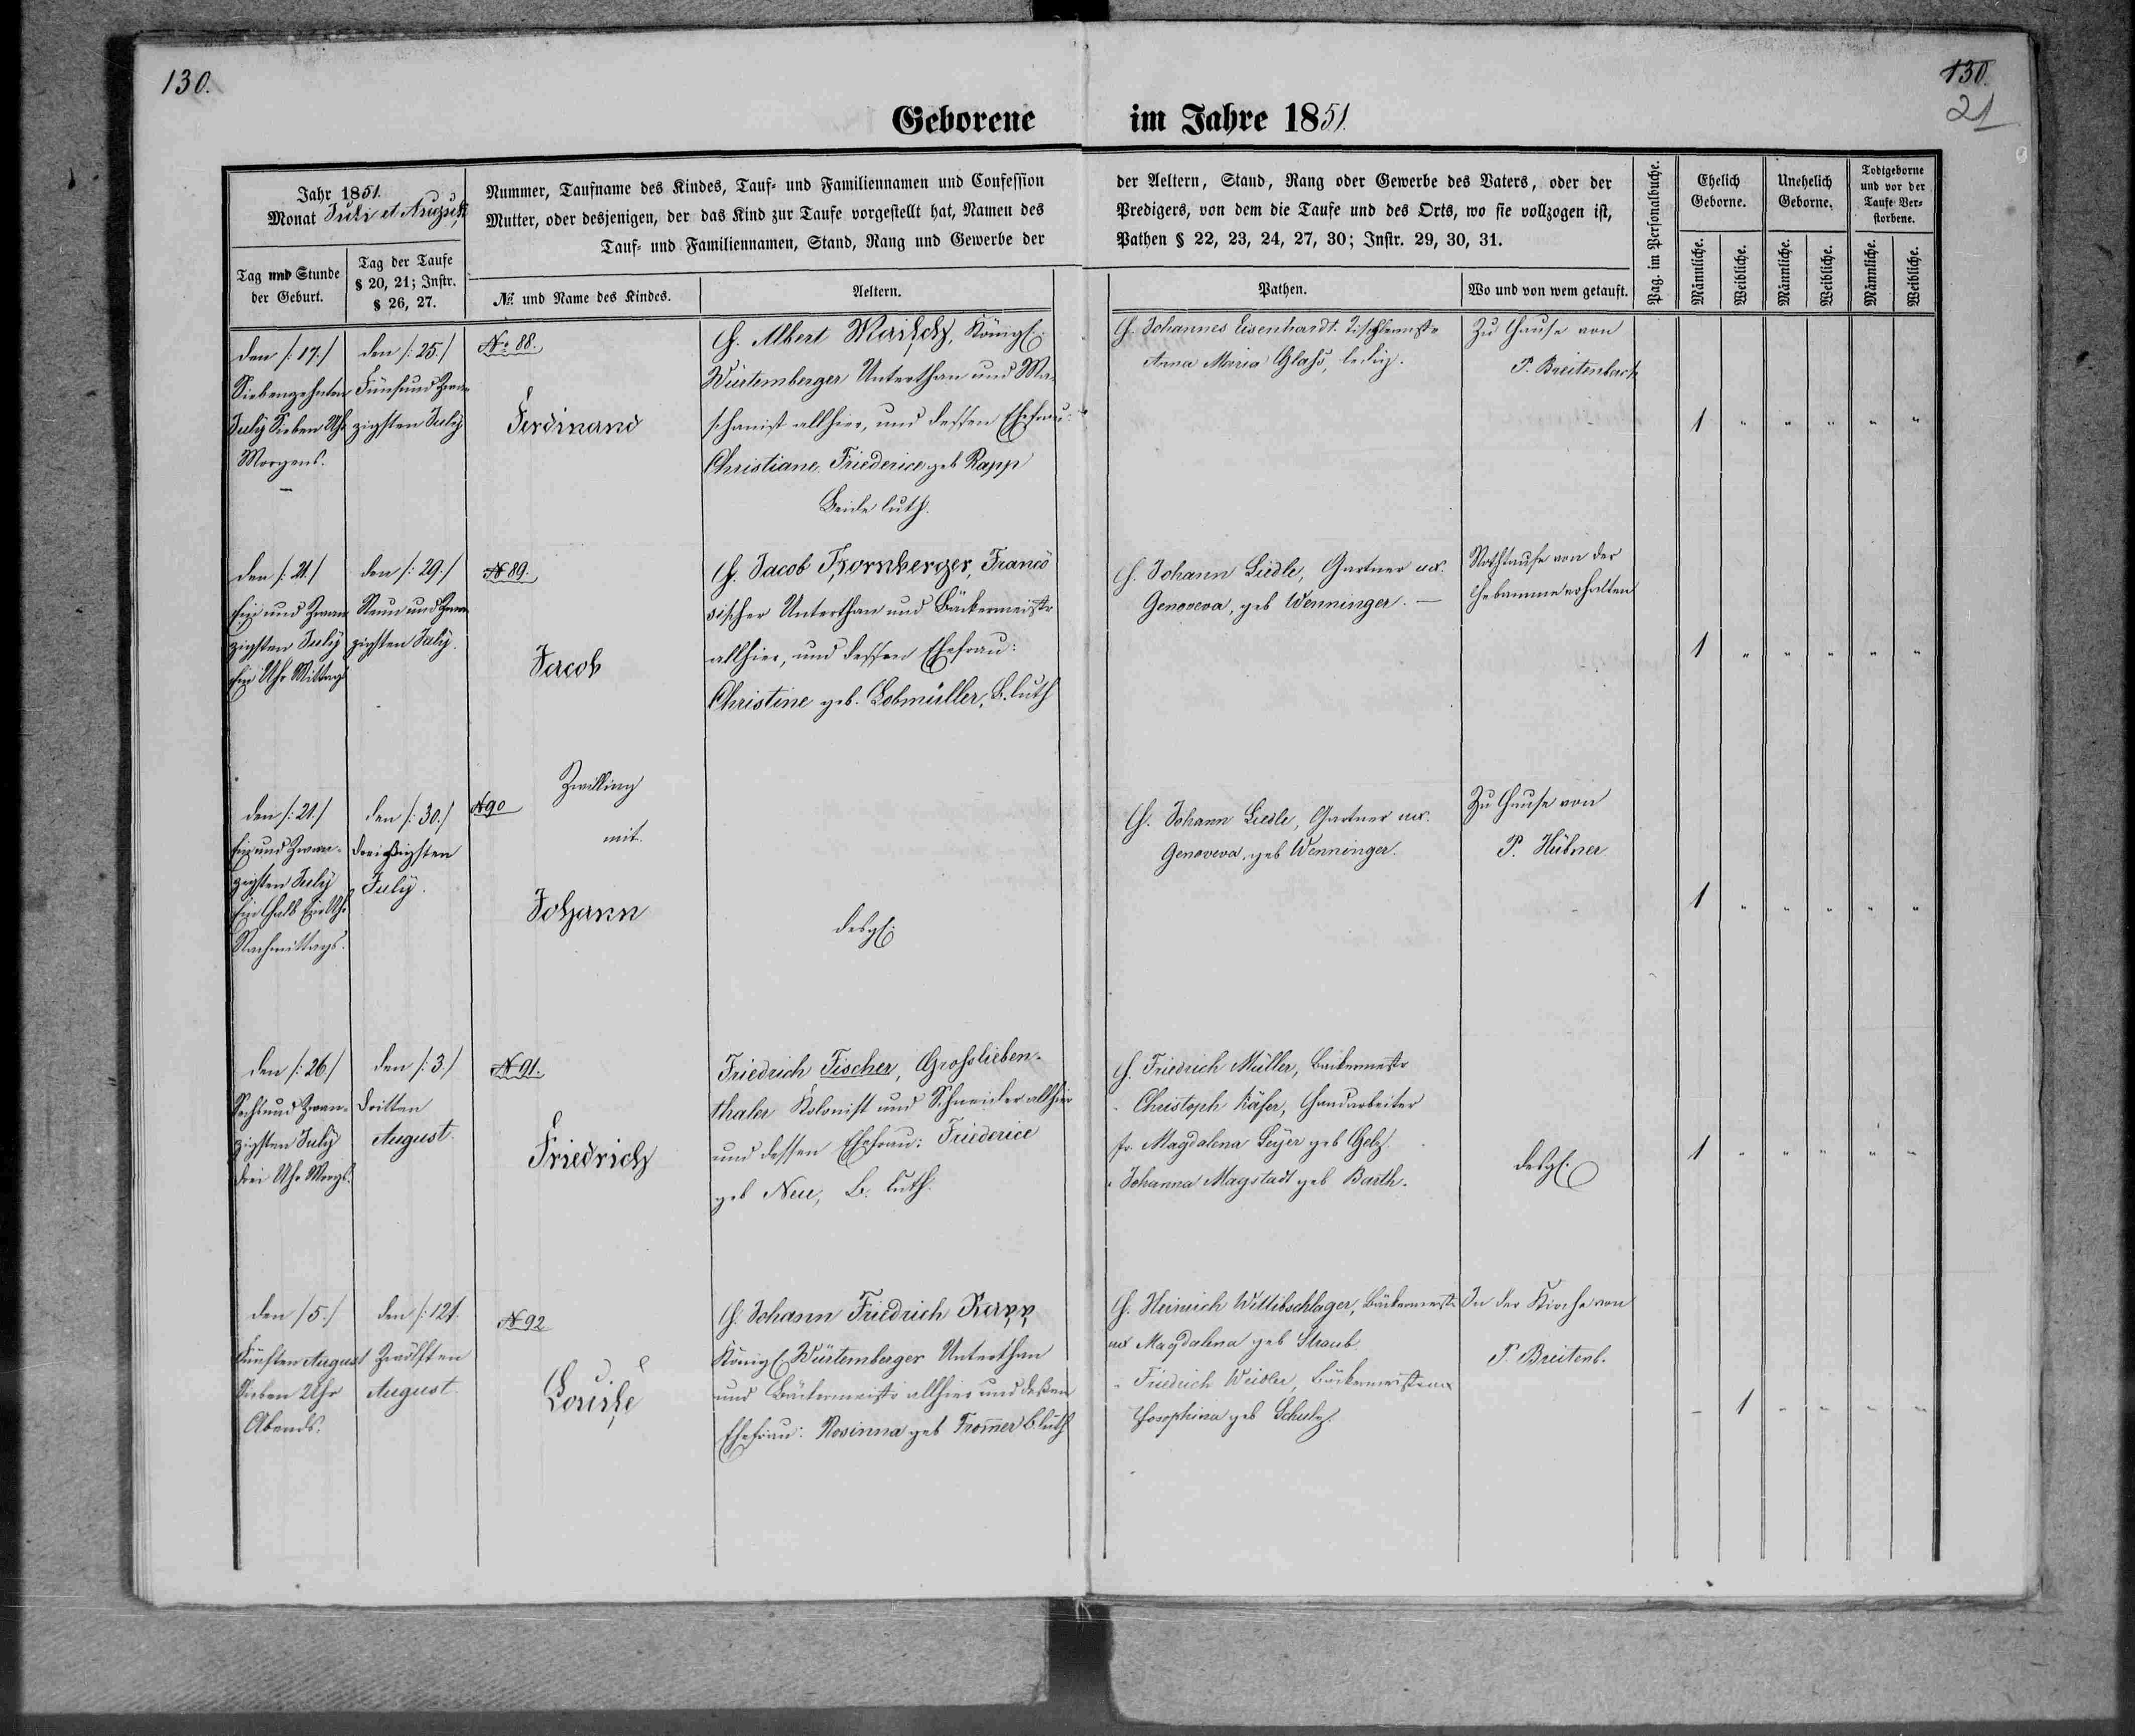 130.
130.
21
Geborene im Jahre 1851.
Jahr 1851.
Monat Juli et August
Tag und Stunde
der Geburt.
Tag der Taufe
§ 20, 21; Instr.
§ 26, 27.
Nummer, Taufname des Kindes, Tauf- und Familiennamen und Confession
Mutter, oder desjenigen, der das Kind zur Taufe vorgestellt hat, Namen des
Tauf- und Familiennamen, Stand, Rang und Gewerbe der
№ und Name des Kindes.
Aeltern.
der Aeltern, Stand, Rang oder Gewerbe des Vaters, oder der
Predigers, von dem die Taufe und des Orts, wo sie vollzogen ist,
Pathen § 22, 23, 24, 27, 30; Instr. 29, 30, 31.
Pathen.
Wo und von wem getauft.
Pag. im Personalbuche.
Ehelich
Geborne.
Unehelich
Geborne.
Todtgeborne
und vor der
Taufe Ver-
storbene.
Männliche.
Weibliche.
Männliche.
Weibliche.
Männliche.
Weibliche.
den /:17./
Siebenzehnten
July Sieben Uhr
Morgens.
den /:25./
Fünfund Zwan
zigsten July
No 88.
Ferdinand
H. Albert , Königl:
Würtemberger Unterthan und Ma-
schanist allhier, und dessen Ehefrau:
Christiane Friederice geb Rapp
Beide luth.
H. Johannes Eisenhardt. Tischlermstr
Anna Maria Glahs, ledig.
Zu Hause von
P. Breitenbach
1 " " " " "
den /:21./
Ein und Zwan
zigsten July
Ein Uhr Mittags
den /:29./
Neun und Zwan
zigsten July.
N 89.
Jacob
H. Jacob , Franco
sischer Unterthan und Bäckermeistr
allhier, und dessen Ehefrau:
Christine geb. Lobmüller, B. luth
H. Johann Liedle, Gartner ux.
Genoveva, geb Wenninger. —
Nothtaufe von der
Hebamme erhalten
1 " " " " "
den /:21./
Ein und Zwan-
zigsten July
Ein halb Ein Uhr
Nachmittags.
den /:30./
Dreißigsten
July.
N 90
Zwilling
mit.
Johann
desgl:
H. Johann Liedle, Gartner ux.
Genoveva, geb Wenninger.
Zu Hause von
P. Hübner
1 " " " " "
den /:26./
Sechsund Zwan-
zigsten July
drei Uhr Morgs.
den /:3./
Dritten
August.
N 91.
Friedrich
Friedrich Fischer, Grosslieben-
thaler Kolonist und Schneider allhier
und dessen Ehefrau: Friederice
geb Neu, B. luth.
H. Friedrich Müller, Bäckermstr
" Christoph Käfer, Handarbeiter
fr. Magdalena Seyer geb Gelz
" Johanna Magstadt geb Barth.
desgl:
1 " " " " "
den /5./
Fünften August
Sieben Uhr
Abends.
den /:12/.
Zwölften
August.
N 92
Louise
H. Johann Friedrich Rapp
Königl Würtemberger Unterthan
und Bäckermeistr allhier und deßen
Ehefrau: Rosinna geb Trom̄er B. luth
H. Heinrich Wittibschlager, Bäckermeistr
ux Magdalena geb Straub.
" Friedrich Weidler, Bäckermeister ux
Josephina geb Schulz.
In der Kirche von
P. Breitenb.
– 1 " " " "